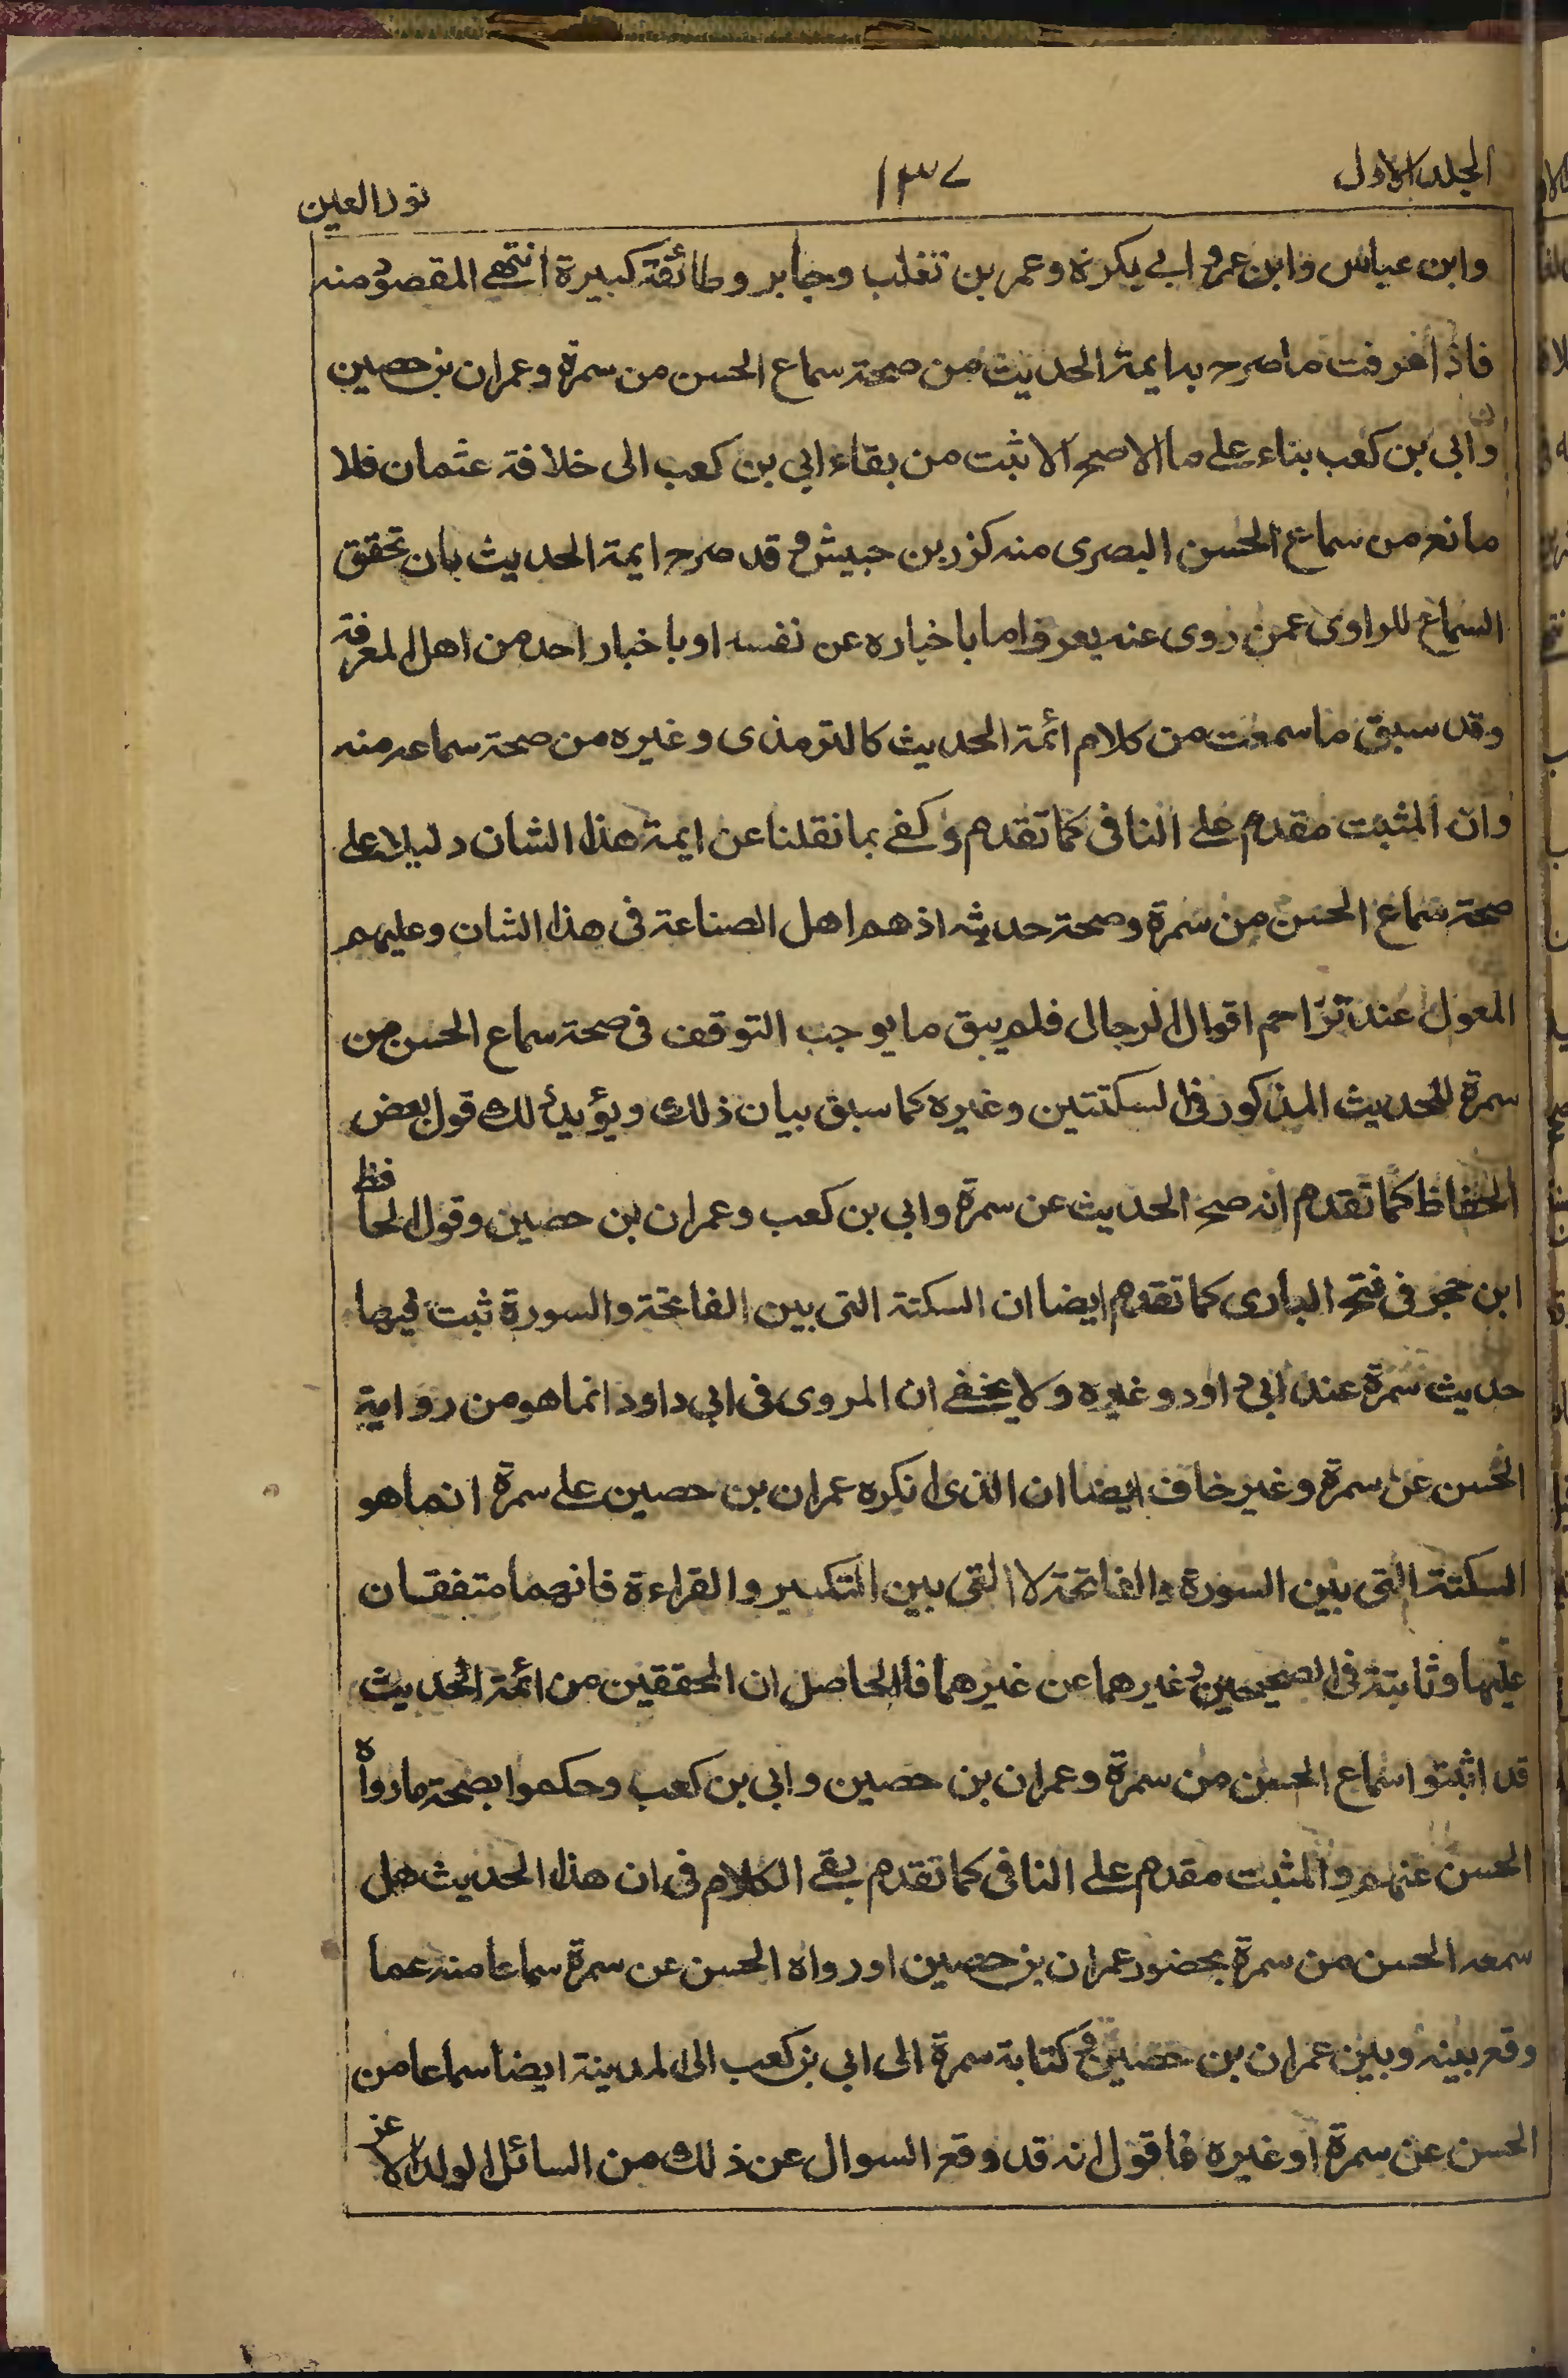 المجلد الاول
١٣٧
نور العين
وابن عباس وابن عمر و ابي بكرة وعمر بن تغلب وجابر وطائفة كبيرة انتهى المقصود منه
فاذا عرفت ما صرح به ايمة الحديث من صحة سماع الحسن من سمرة وعمران بن حصين
وابي بن كعب بناء على ما الاصح الاثبت من بقاء ابي بن كعب الى خلافة عثمان فلا
مانع من سماع الحسن البصرى منه كزر بن حبيش و قد صرح ايمة الحديث بان تحقق
السماع للراوى عمن روى عنه يعرف اما باخباره عن نفسه او باخبار احد من اهل المعرفة
وقد سبق ما سمعت من كلام ائمة الحديث كالترمذى وغيره من صحة سماعه منه
وان المثبت مقدم على النافى كما تقدم وكفى بما نقلنا عن ايمة هذا الشان دليلا على
صحة سماع الحسن من سمرة وصحة حديثه اذ هم اهل الصناعة فى هذا الشان وعليهم
المعول عند تزاحم اقوال الرجال فلم يبق ما يوجب التوقف فى صحة سماع الحسن من
سمرة للحديث المذكور فى السكتتين وغيره كما سبق بيان ذلك ويؤيد لك قول بعض
الحفاظ كما تقدم انه صح الحديث عن سمرة وابي بن كعب وعمران بن حصين وقول الحافظ
ابن حجر فى فتح البارى كما تقدم ايضا ان السكتة التى بين الفاتحة والسورة ثبت فيها
حديث سمرة عند ابي داود وغيره ولا يخفى ان المروى فى ابي داود انما هو من رواية
الحسن عن سمرة وغير خاف ايضا ان الذى انكره عمران بن حصين على سمرة انما هو
السكتة التى بين السورة والفاتحة لا التى بين التكبير والقراءة فانهما متفقان
عليها وثابتة فى الصحيحين وغيرهما عن غيرهما فالحاصل ان المحققين من ائمة الحديث
قد اثبتوا سماع الحسن من سمرة وعمران بن حصين وابي بن كعب وحكموا بصحة مارواه
الحسن عنهم والمثبت مقدم على النافى كما تقدم بقى الكلام فى ان هذا الحديث هل
سمعه الحسن من سمرة بحضور عمران بن حصين او رواه الحسن عن سمرة سماعا منه عما
وقع بينه وبين عمران بن حصين و كتابة سمرة الى ابي بن كعب الى المدينة ايضا سماعا من
الحسن عن سمرة او غيره فاقول انه قد وقع السوال عن ذلك من السائل الولد الاعز